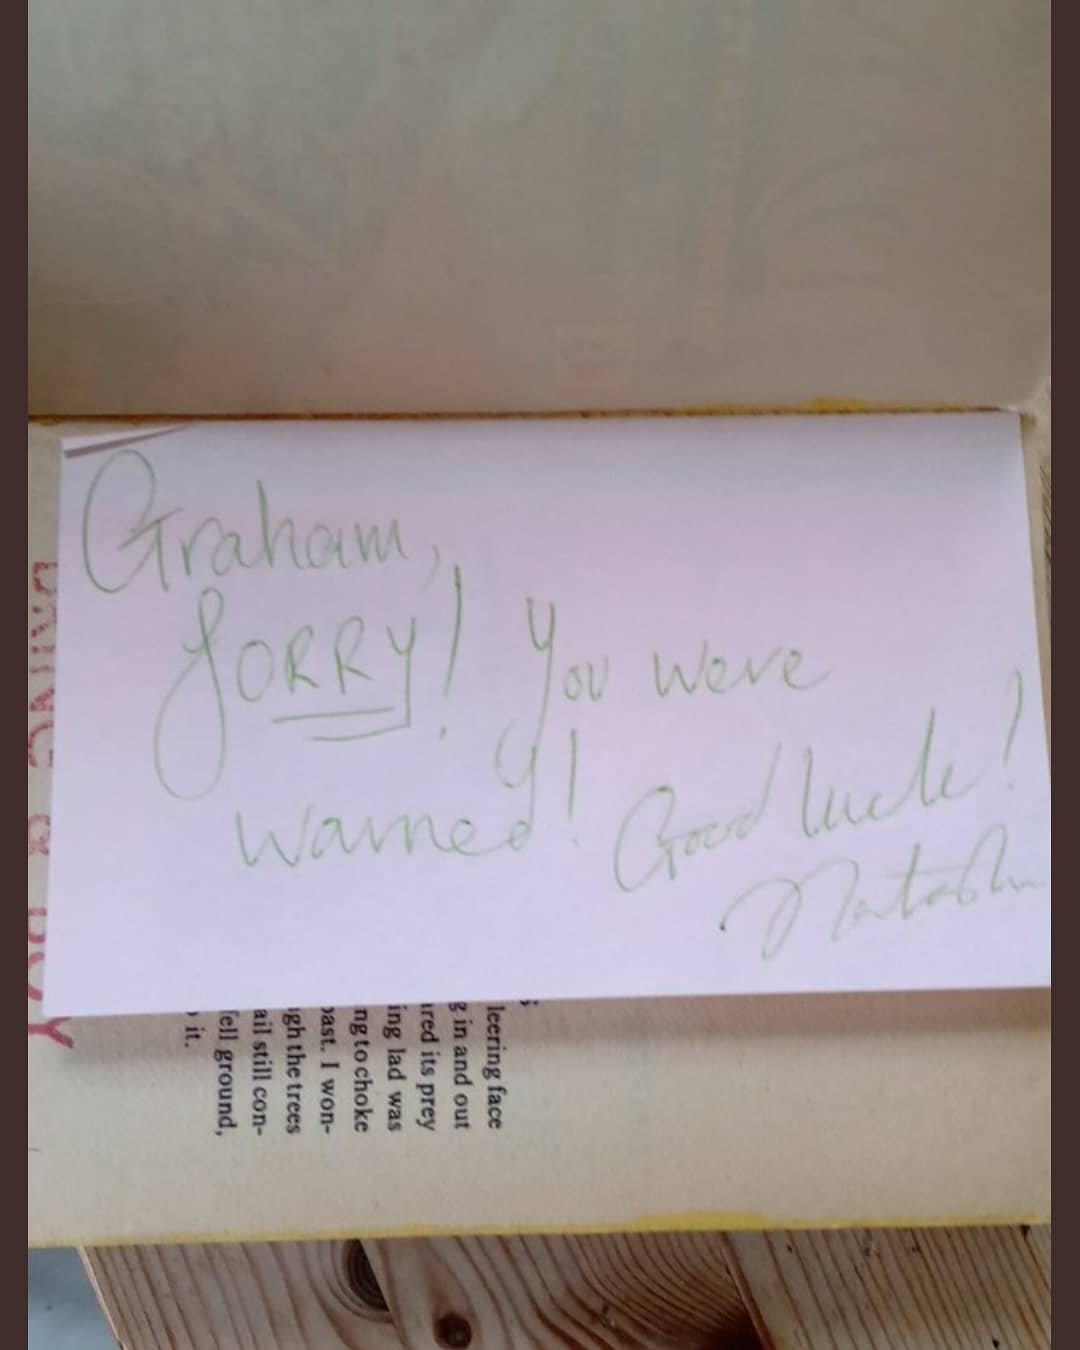 Graham,
SORRY! You were
warned! Good luck!
Natasha
leering face
g in and out
ired its prey
ing lad was
ng to choke
past. I won-
igh the trees
ail still con-
fell ground,
it.